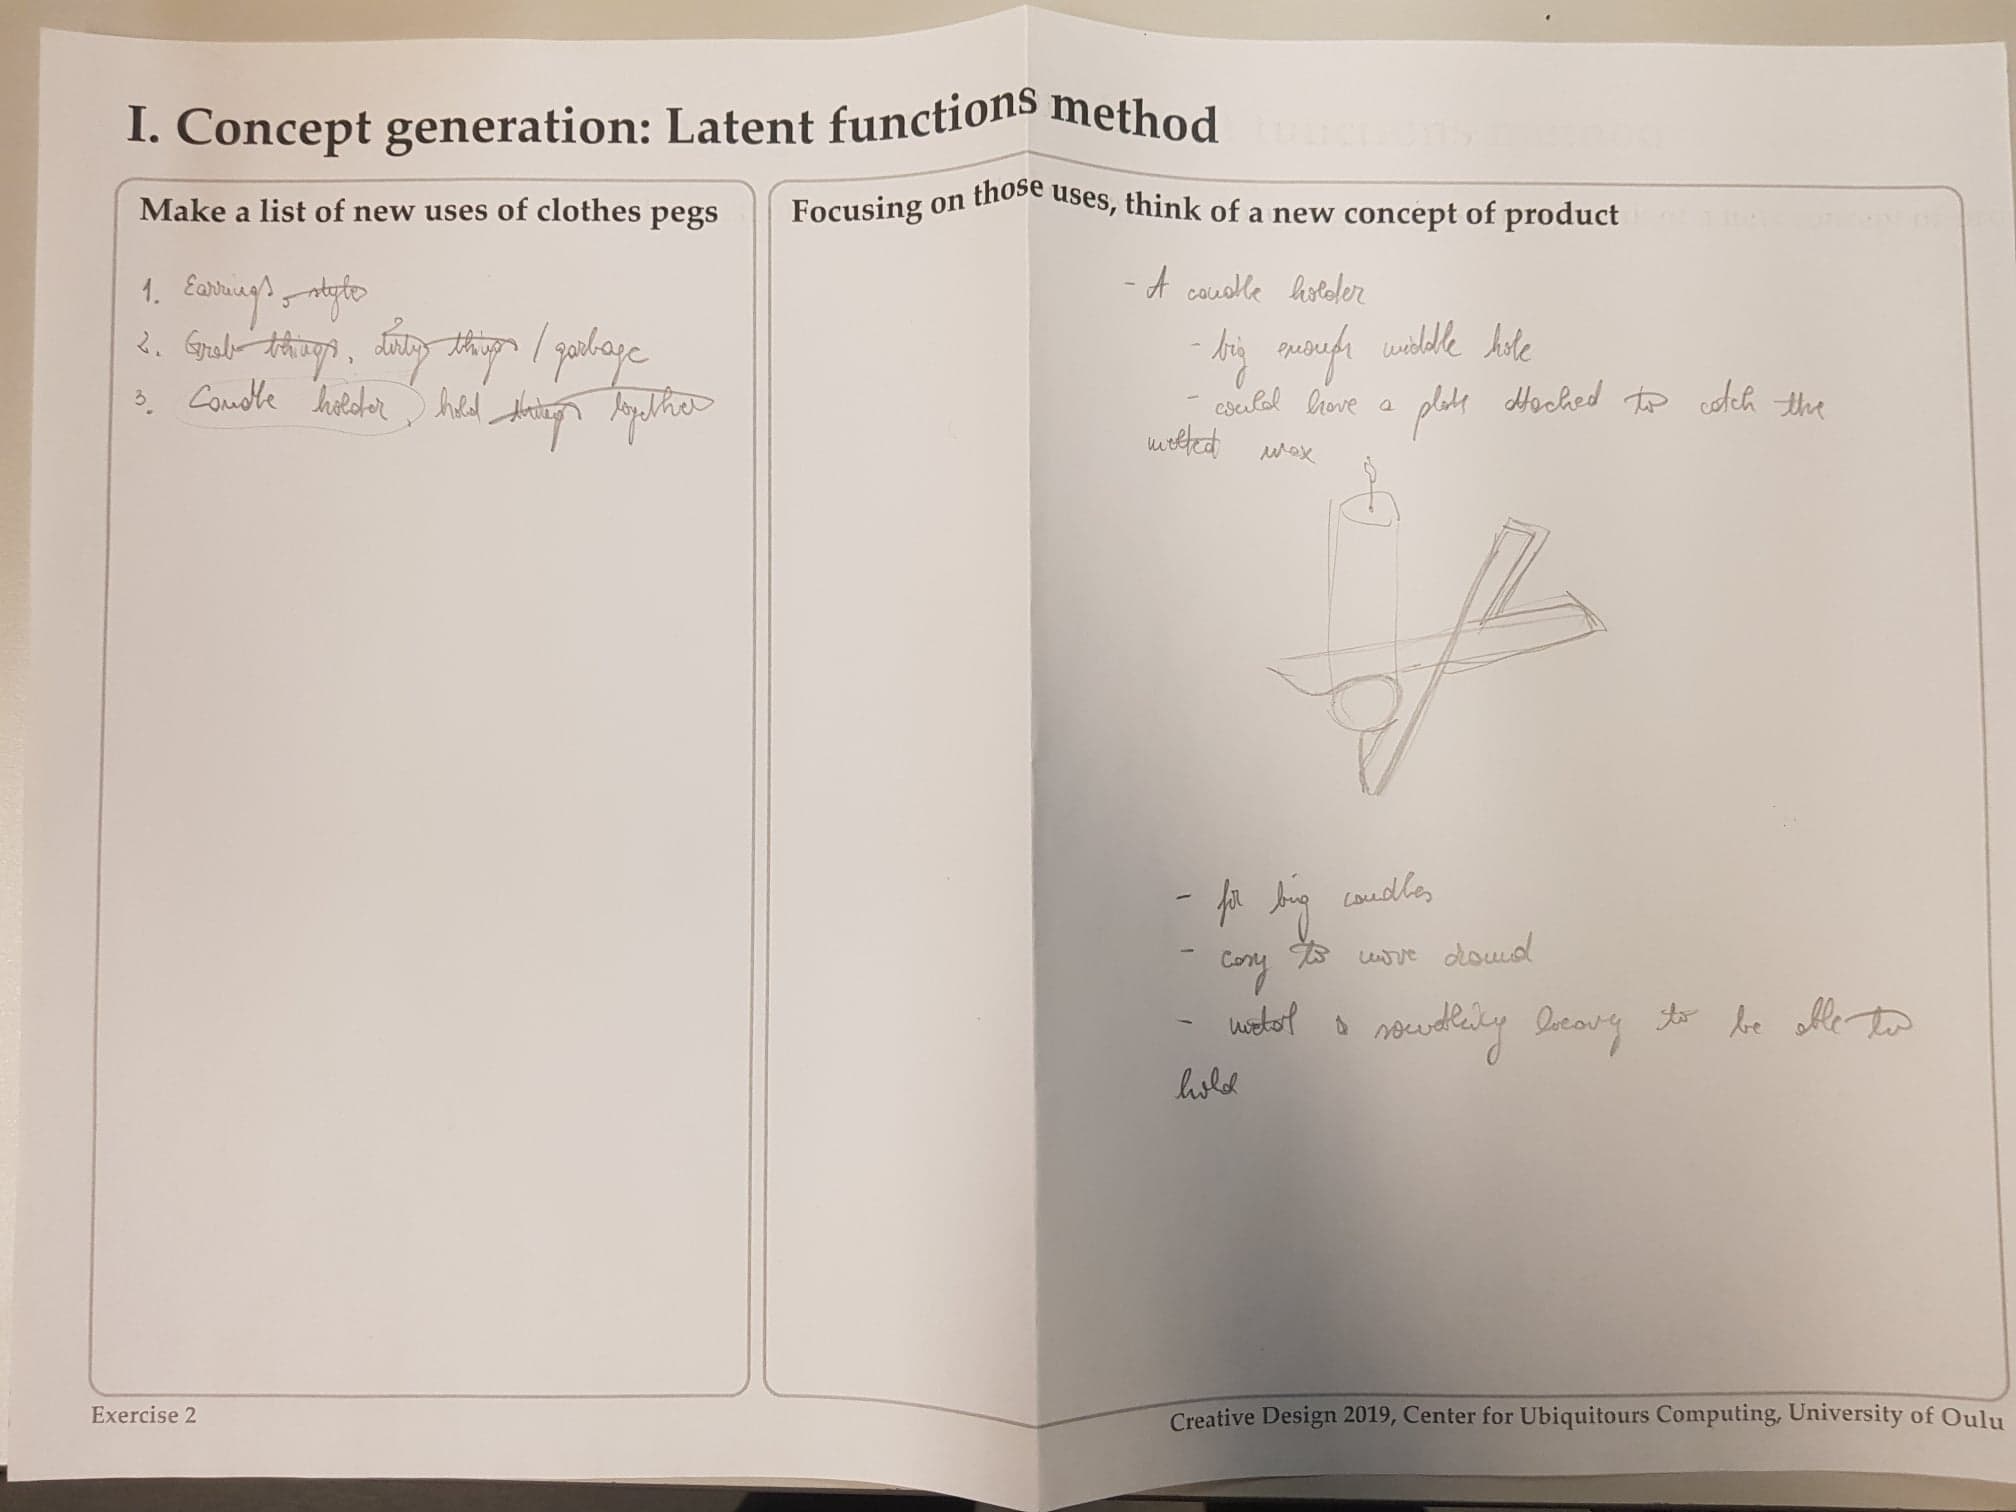 I. Concept generation: Latent functions method
Make a list of new uses of clothes pegs
1. Earrings, styles
2. Grab things, dirty things / garbage
3. Candle holder, hold things together
Focusing on those uses, think of a new concept of product
- A candle holder
- big enough middle hole
- could have a plate attached to catch the
melted wax
- for big candles
- easy to move around
- metal something heavy to be able to
hold
Exercise 2
Creative Design 2019, Center for Ubiquitours Computing, University of Oulu